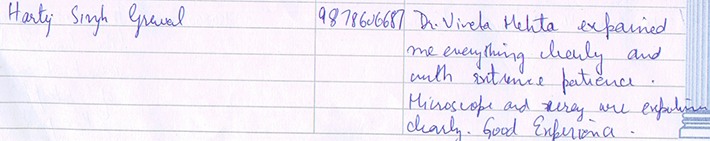 Hartej Singh Grewal 9878606687 Dr. Vivela Mehta expained
me everything clearly and
with extreme patience.
Microscope and xeray were
clearly. Good Experienc.